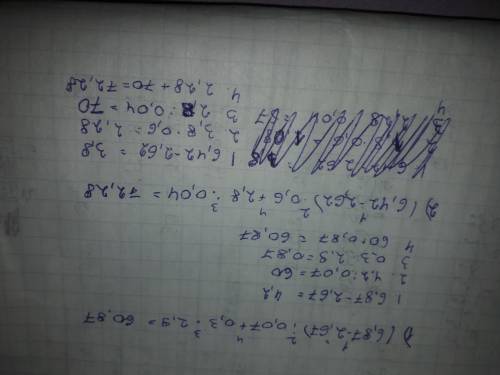 1) (6,87-2,67) : 0,07 + 0,3 · 2,9 = 60,87
1 6,87-2,67 = 4,2
2. 4,2 : 0,07 = 60
3 0,3 · 2,9 = 0,87
4 60 + 0,87 = 60,87
2) (6,42-2,62) · 0,6 + 2,8 : 0,04 = 72,28
1 6,42-2,62 = 3,8
2 3,8 · 0,6 = 2,28
3 2,8 : 0,04 = 70
4. 2,28 + 70 = 72,28